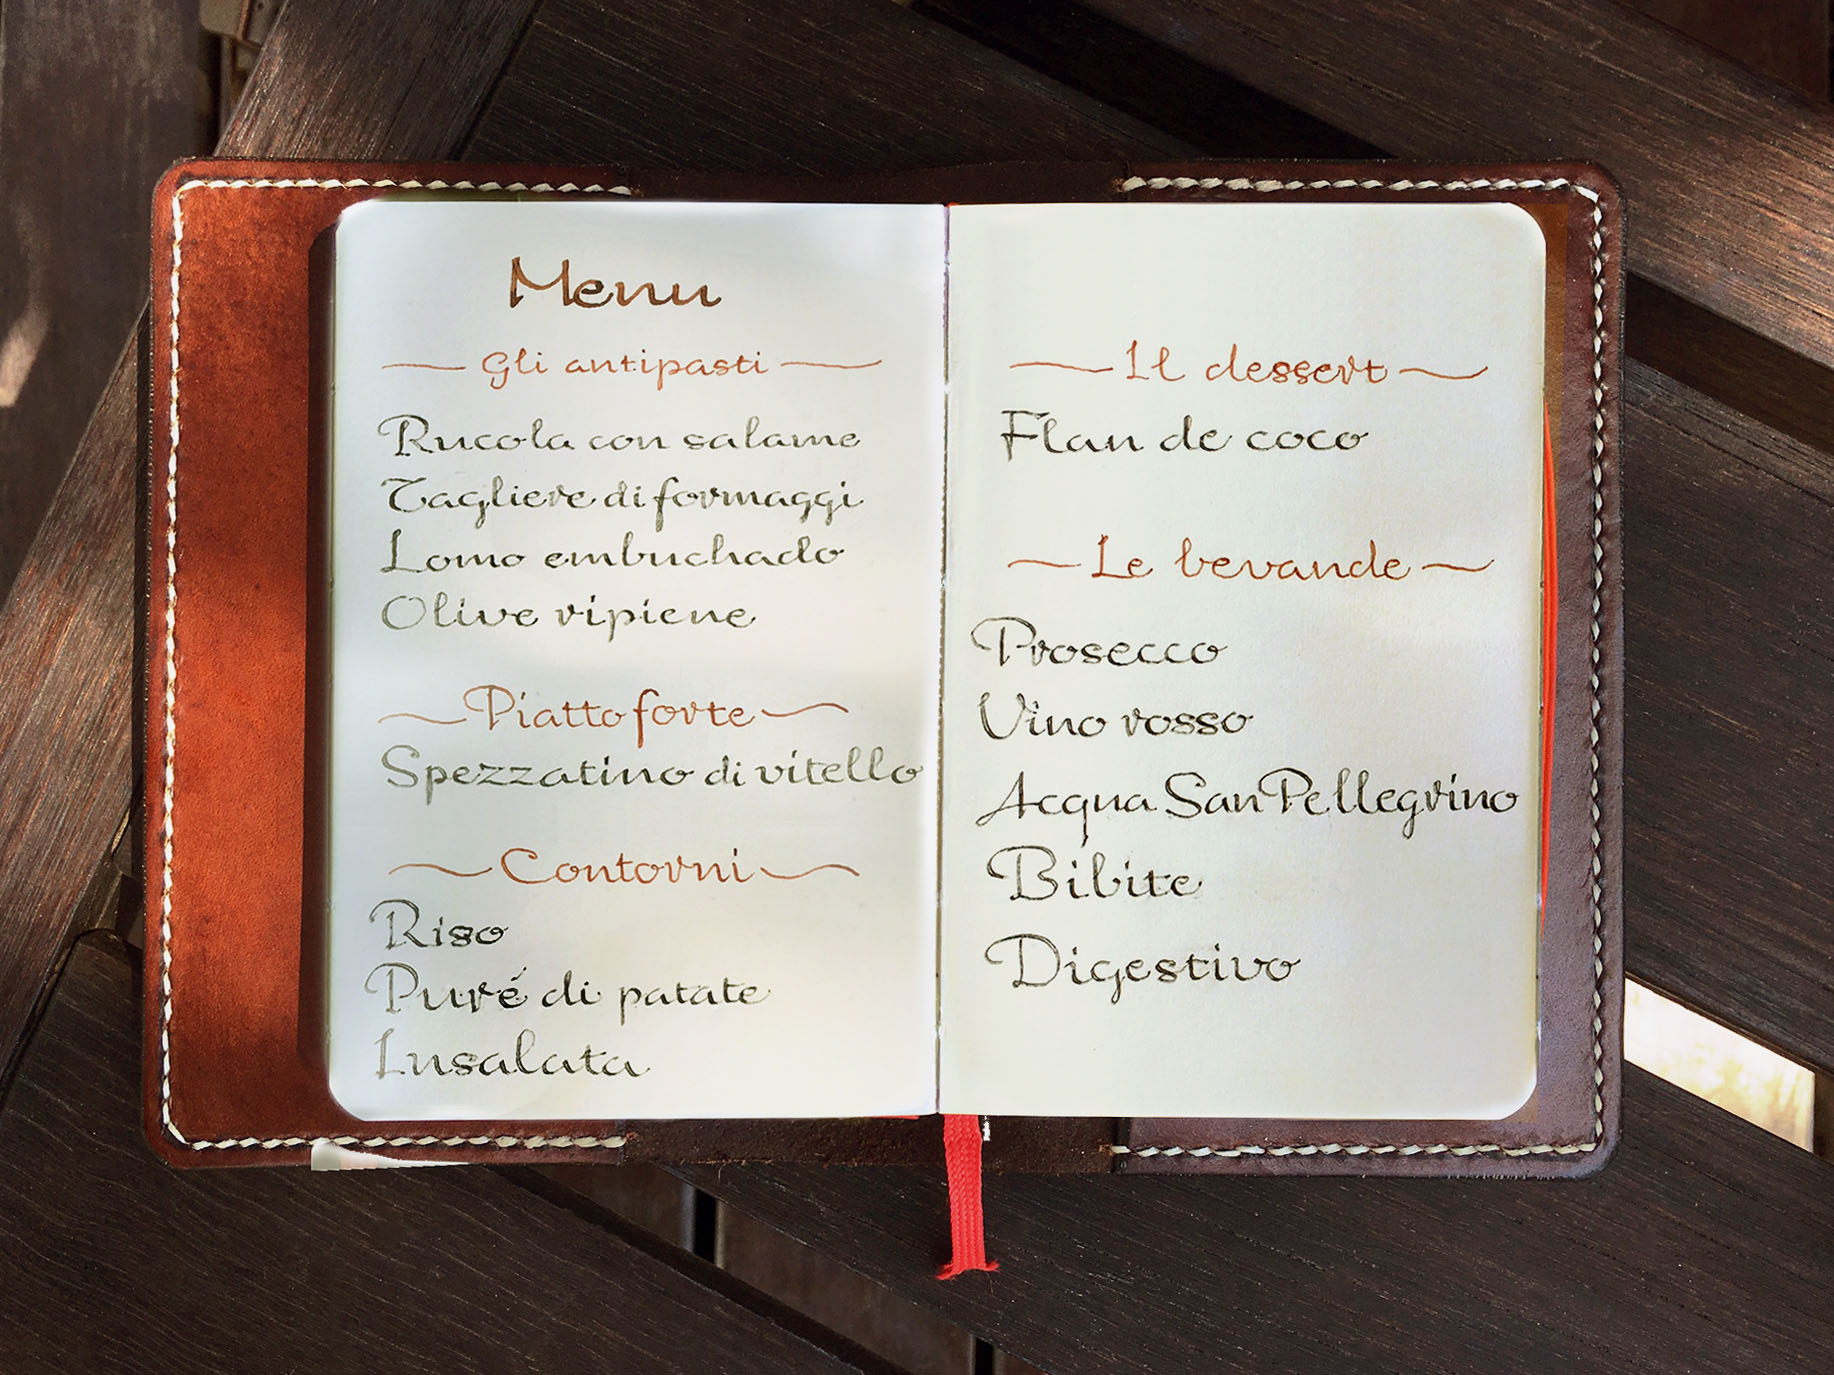 Menu
Gli antipasti
Rucola con salame
Tagliere di formaggi
Lomo embuchado
Olive ripiene
Piatto forte
Spezzatino di vitello
Contorni
Riso
Puré di patate
Insalata
Il dessert
Flan de coco
Le bevande
Prosecco
Vino rosso
Acqua San Pellegrino
Bibite
Digestivo